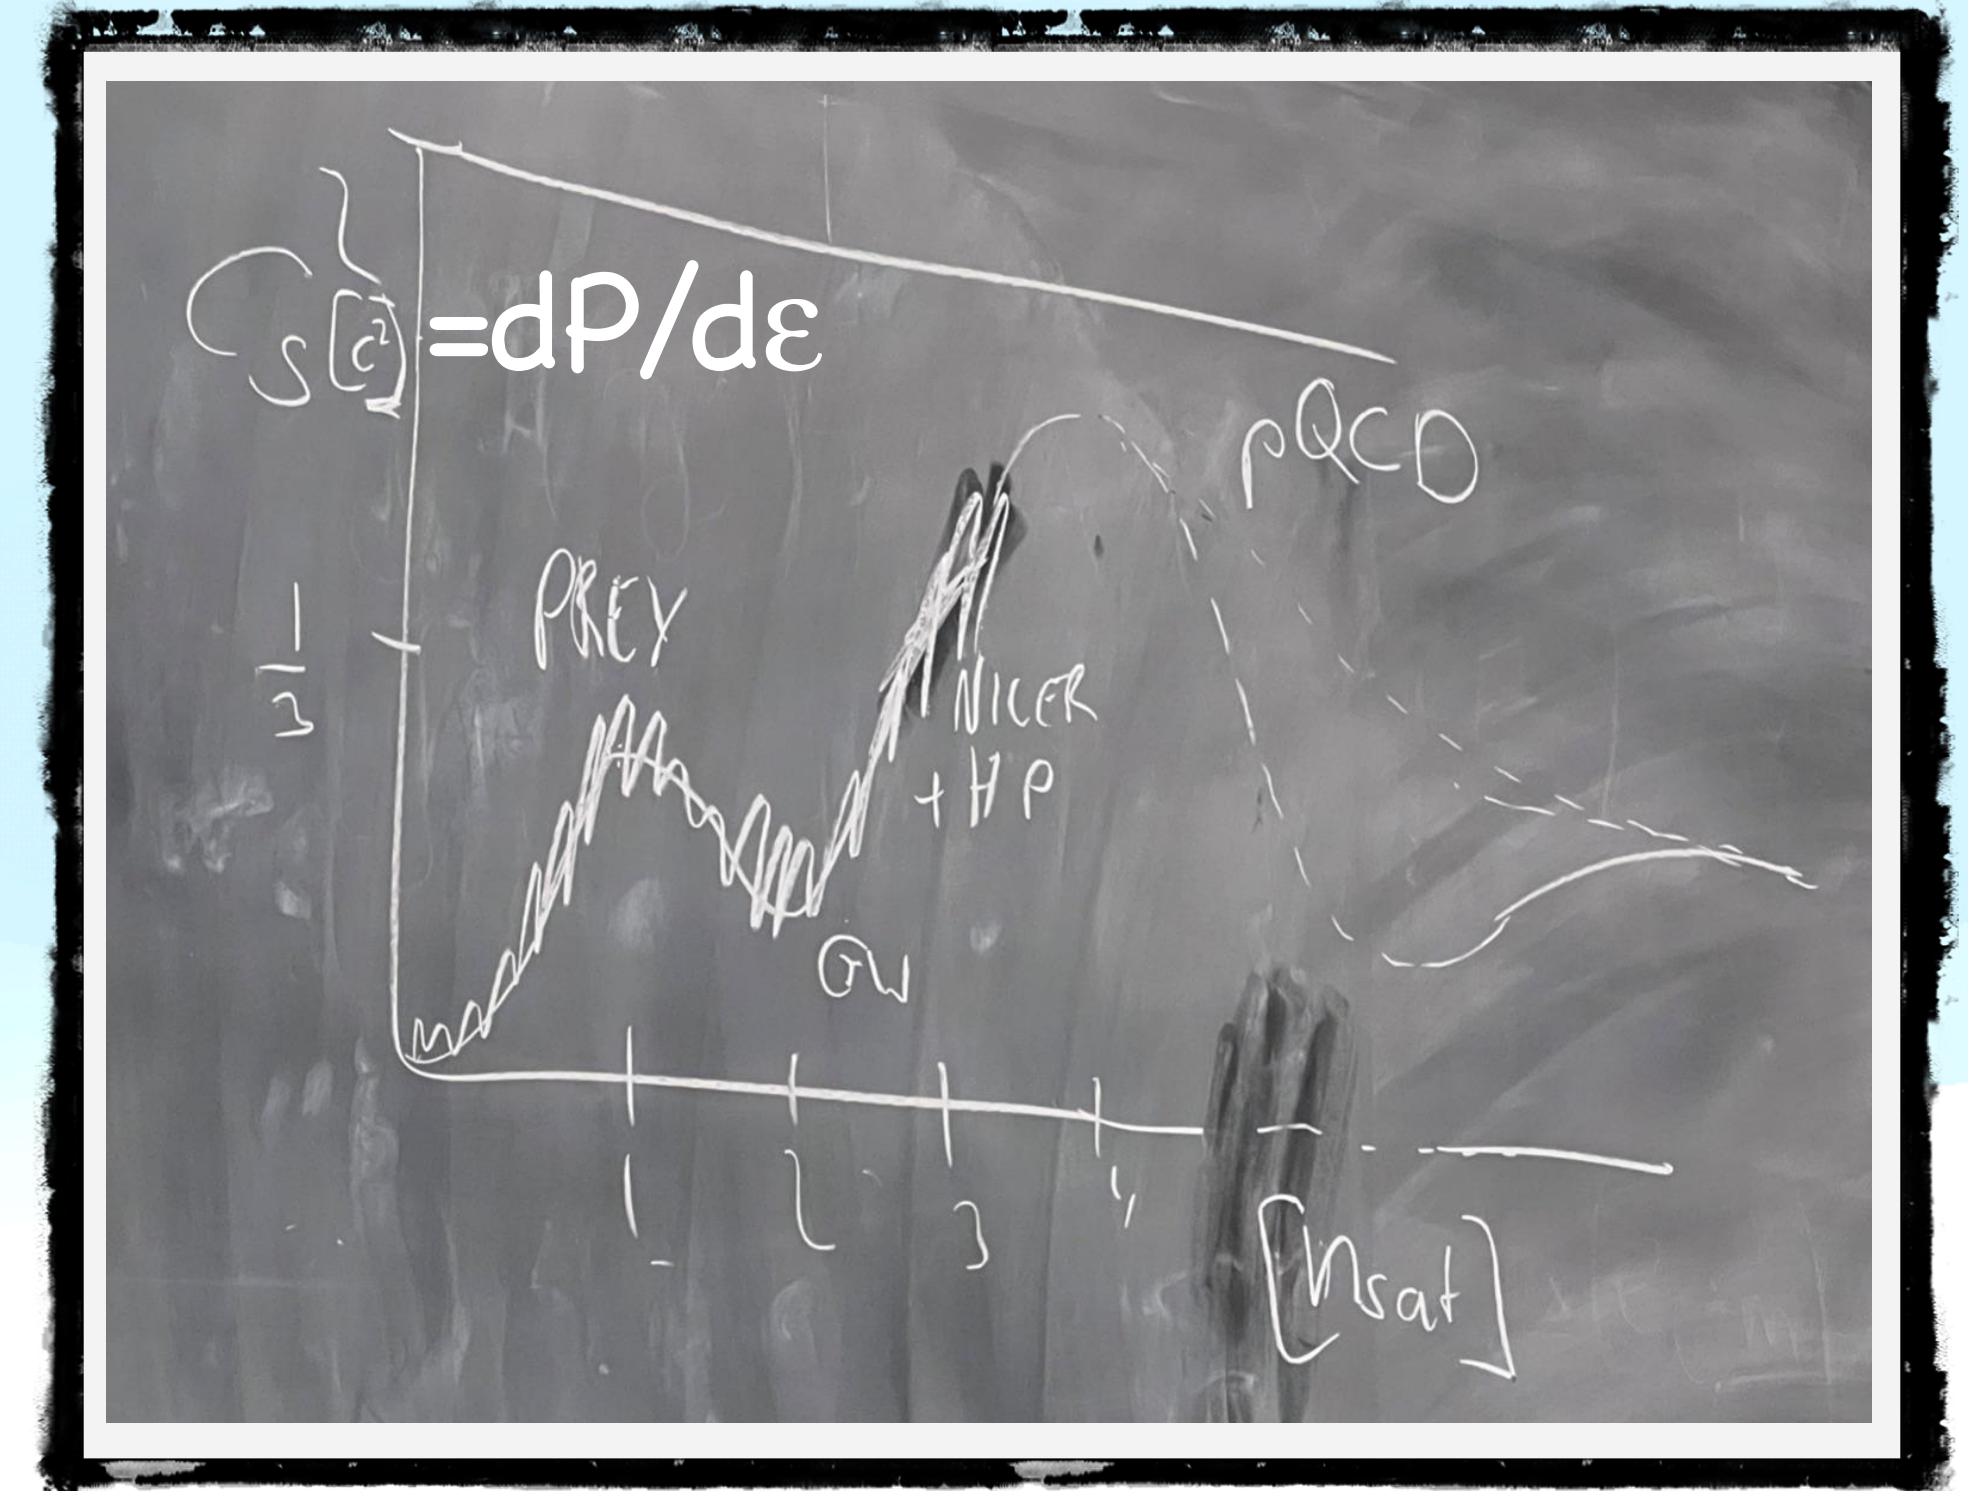 Cs²[c²]=dP/dε
pQCD
PREX
1/3
NICER
+ HP
GW
1 2 3 4
[nsat]